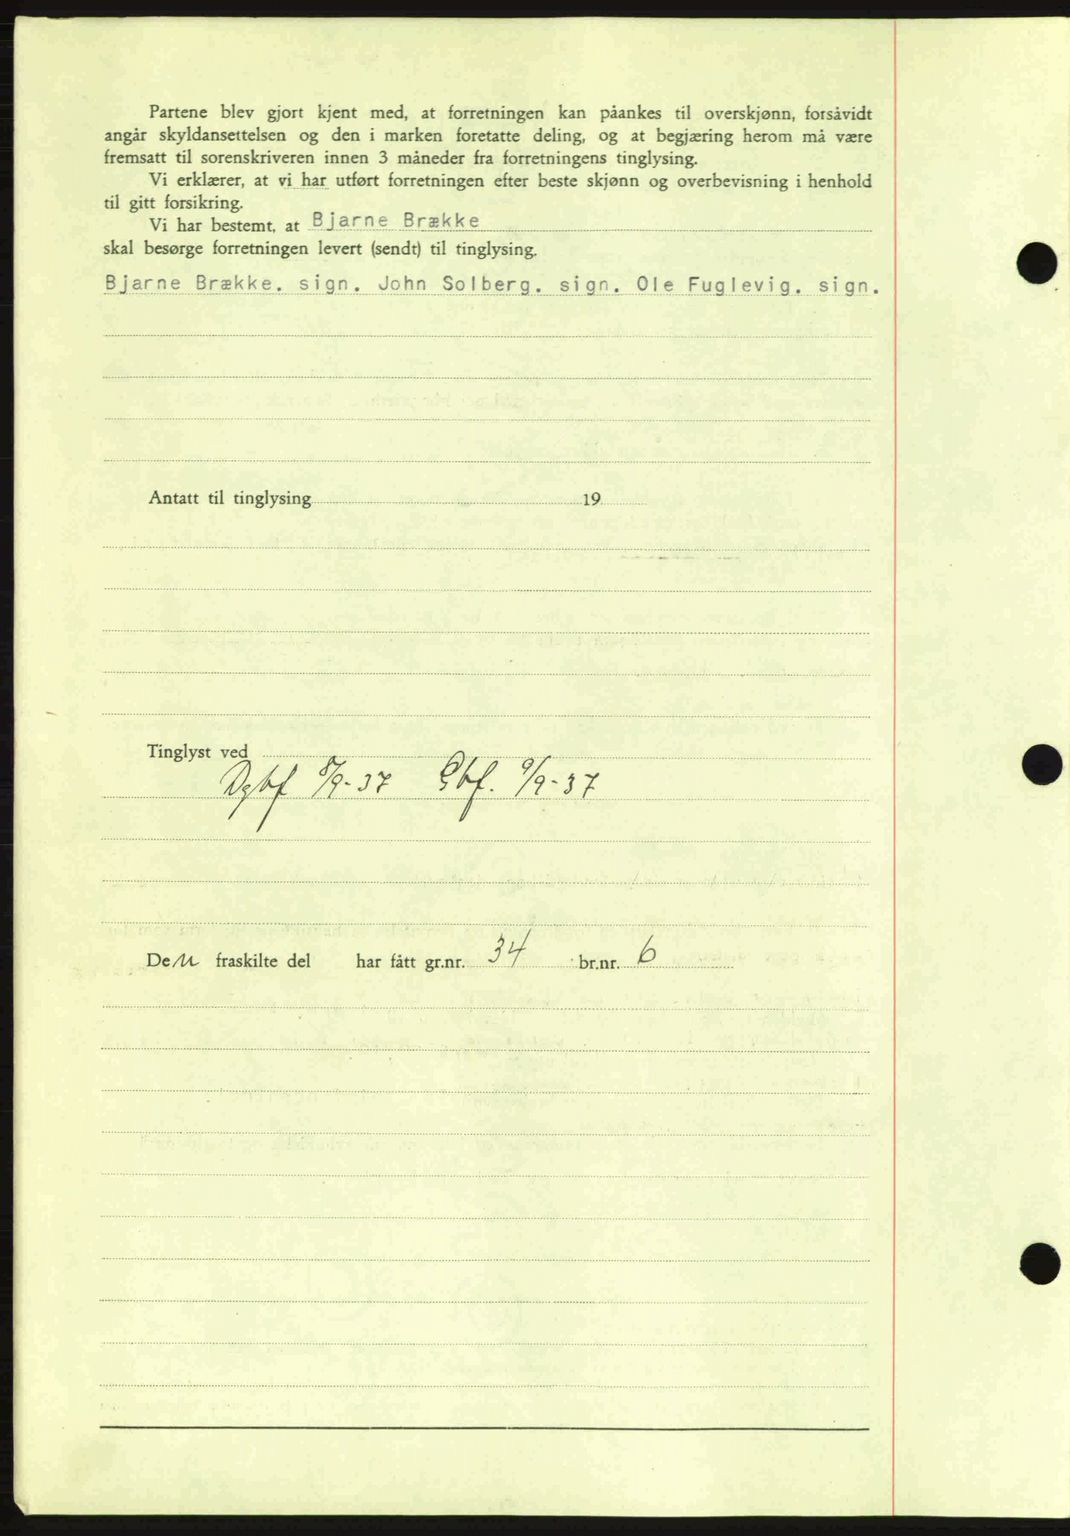 Partene blev gjort kjent med, at forretningen kan påankes til overskjønn, forsåvidt
angår skyldansettelsen og den i marken foretatte deling, og at begjæring herom må være
fremsatt til sorenskriveren innen 3 måneder fra forretningens tinglysing.
Vi erklærer, at vi har utført forretningen efter beste skjønn og overbevisning i henhold
til gitt forsikring.
Vi har bestemt, at Bjarne Brække
skal besørge forretningen levert (sendt) til tinglysing.
Bjarne Brække. sign. John Solberg. sign. Ole Fuglevig. sign.
Antatt til tinglysing 19
Tinglyst ved
Dgbf 8/9-37 Gbf. 9/9-37
Den fraskilte del har fått gr.nr. 34 br.nr. 6